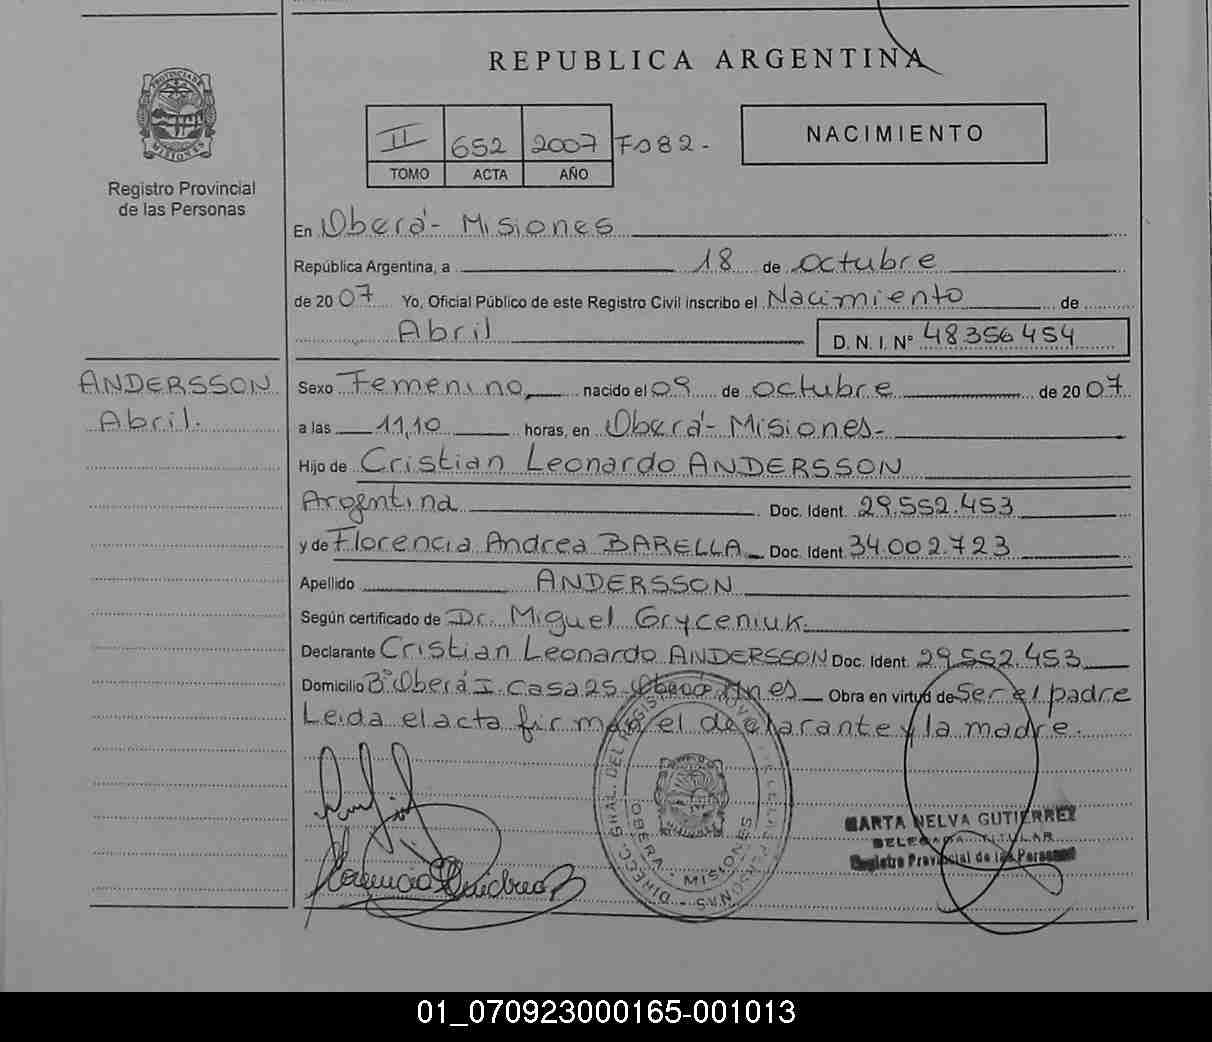 REPUBLICA ARGENTINA
PROVINCIA DE
MISIONES
Registro Provincial
de las Personas
II 652 2007 Fº 82.-
TOMO ACTA AÑO
NACIMIENTO
En Oberá - Misiones
República Argentina, a 18 de octubre
de 2007 Yo, Oficial Público de este Registro Civil inscribo el Nacimiento de
Abril D. N. I. Nº 48356454
ANDERSSON
Abril.
Sexo Femenino, nacido el 09 de octubre de 2007
a las 11,10 horas, en Oberá - Misiones-
Hijo de Cristian Leonardo ANDERSSON
Argentina Doc. Ident. 29.552.453
y de Florencia Andrea BARELLA Doc. Ident. 34.002.723
Apellido ANDERSSON
Según certificado de Dr. Miguel Gryceniuk.
Declarante Cristian Leonardo ANDERSSON Doc. Ident. 29.552.453
Domicilio Bº Oberá I. Casa 25 - Oberá Mnes Obra en virtud de Ser el padre
Leida el acta firman el declarante y la madre.
DIRECC. GRAL. DEL REGISTRO PROV. DE LAS PERSONAS
OBERA - MISIONES
MARTA NELVA GUTIERREZ
DELEGADA TITULAR
Registro Provincial de las Personas
01_070923000165-001013